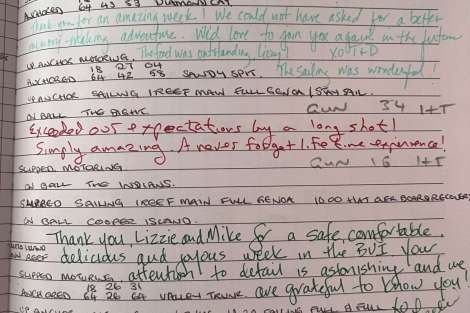 ANCHORED 64 43 53 DIAMOND CAY
Thank you for an amazing week! We could not have asked for a better
memory-making adventure. We'd love to join you again in the future
UP ANCHOR MOTORING. The food was outstanding, Lizzy!
18 27 04
ANCHORED 64 42 58 SANDY SPIT. The sailing was wonderful!
UP ANCHOR SAILING 1 REEF MAIN FULL GENOA
ON BALL THE BIGHT. GUN 34 1+T
Exceeded our expectations by a long shot!
Simply amazing. A never forget lifetime experience!
SLIPPED MOTORING. GUN 16 1+T
ON BALL THE INDIANS.
SLIPPED SAILING 1 REEF MAIN FULL GENOA 10.00 HAT OVERBOARD RECOVERED
ON BALL COOPER ISLAND.
Thank you, Lizzie and Mike for a safe, comfortable,
delicious and joyous week in the BVI. Your
SLIPPED MOTORING. attention to detail is astonishing and we
18 26 31
ANCHORED 64 26 64 VALLEY TRUNK. are grateful to know you!
UP ANCHOR SAILING FULL & FULL